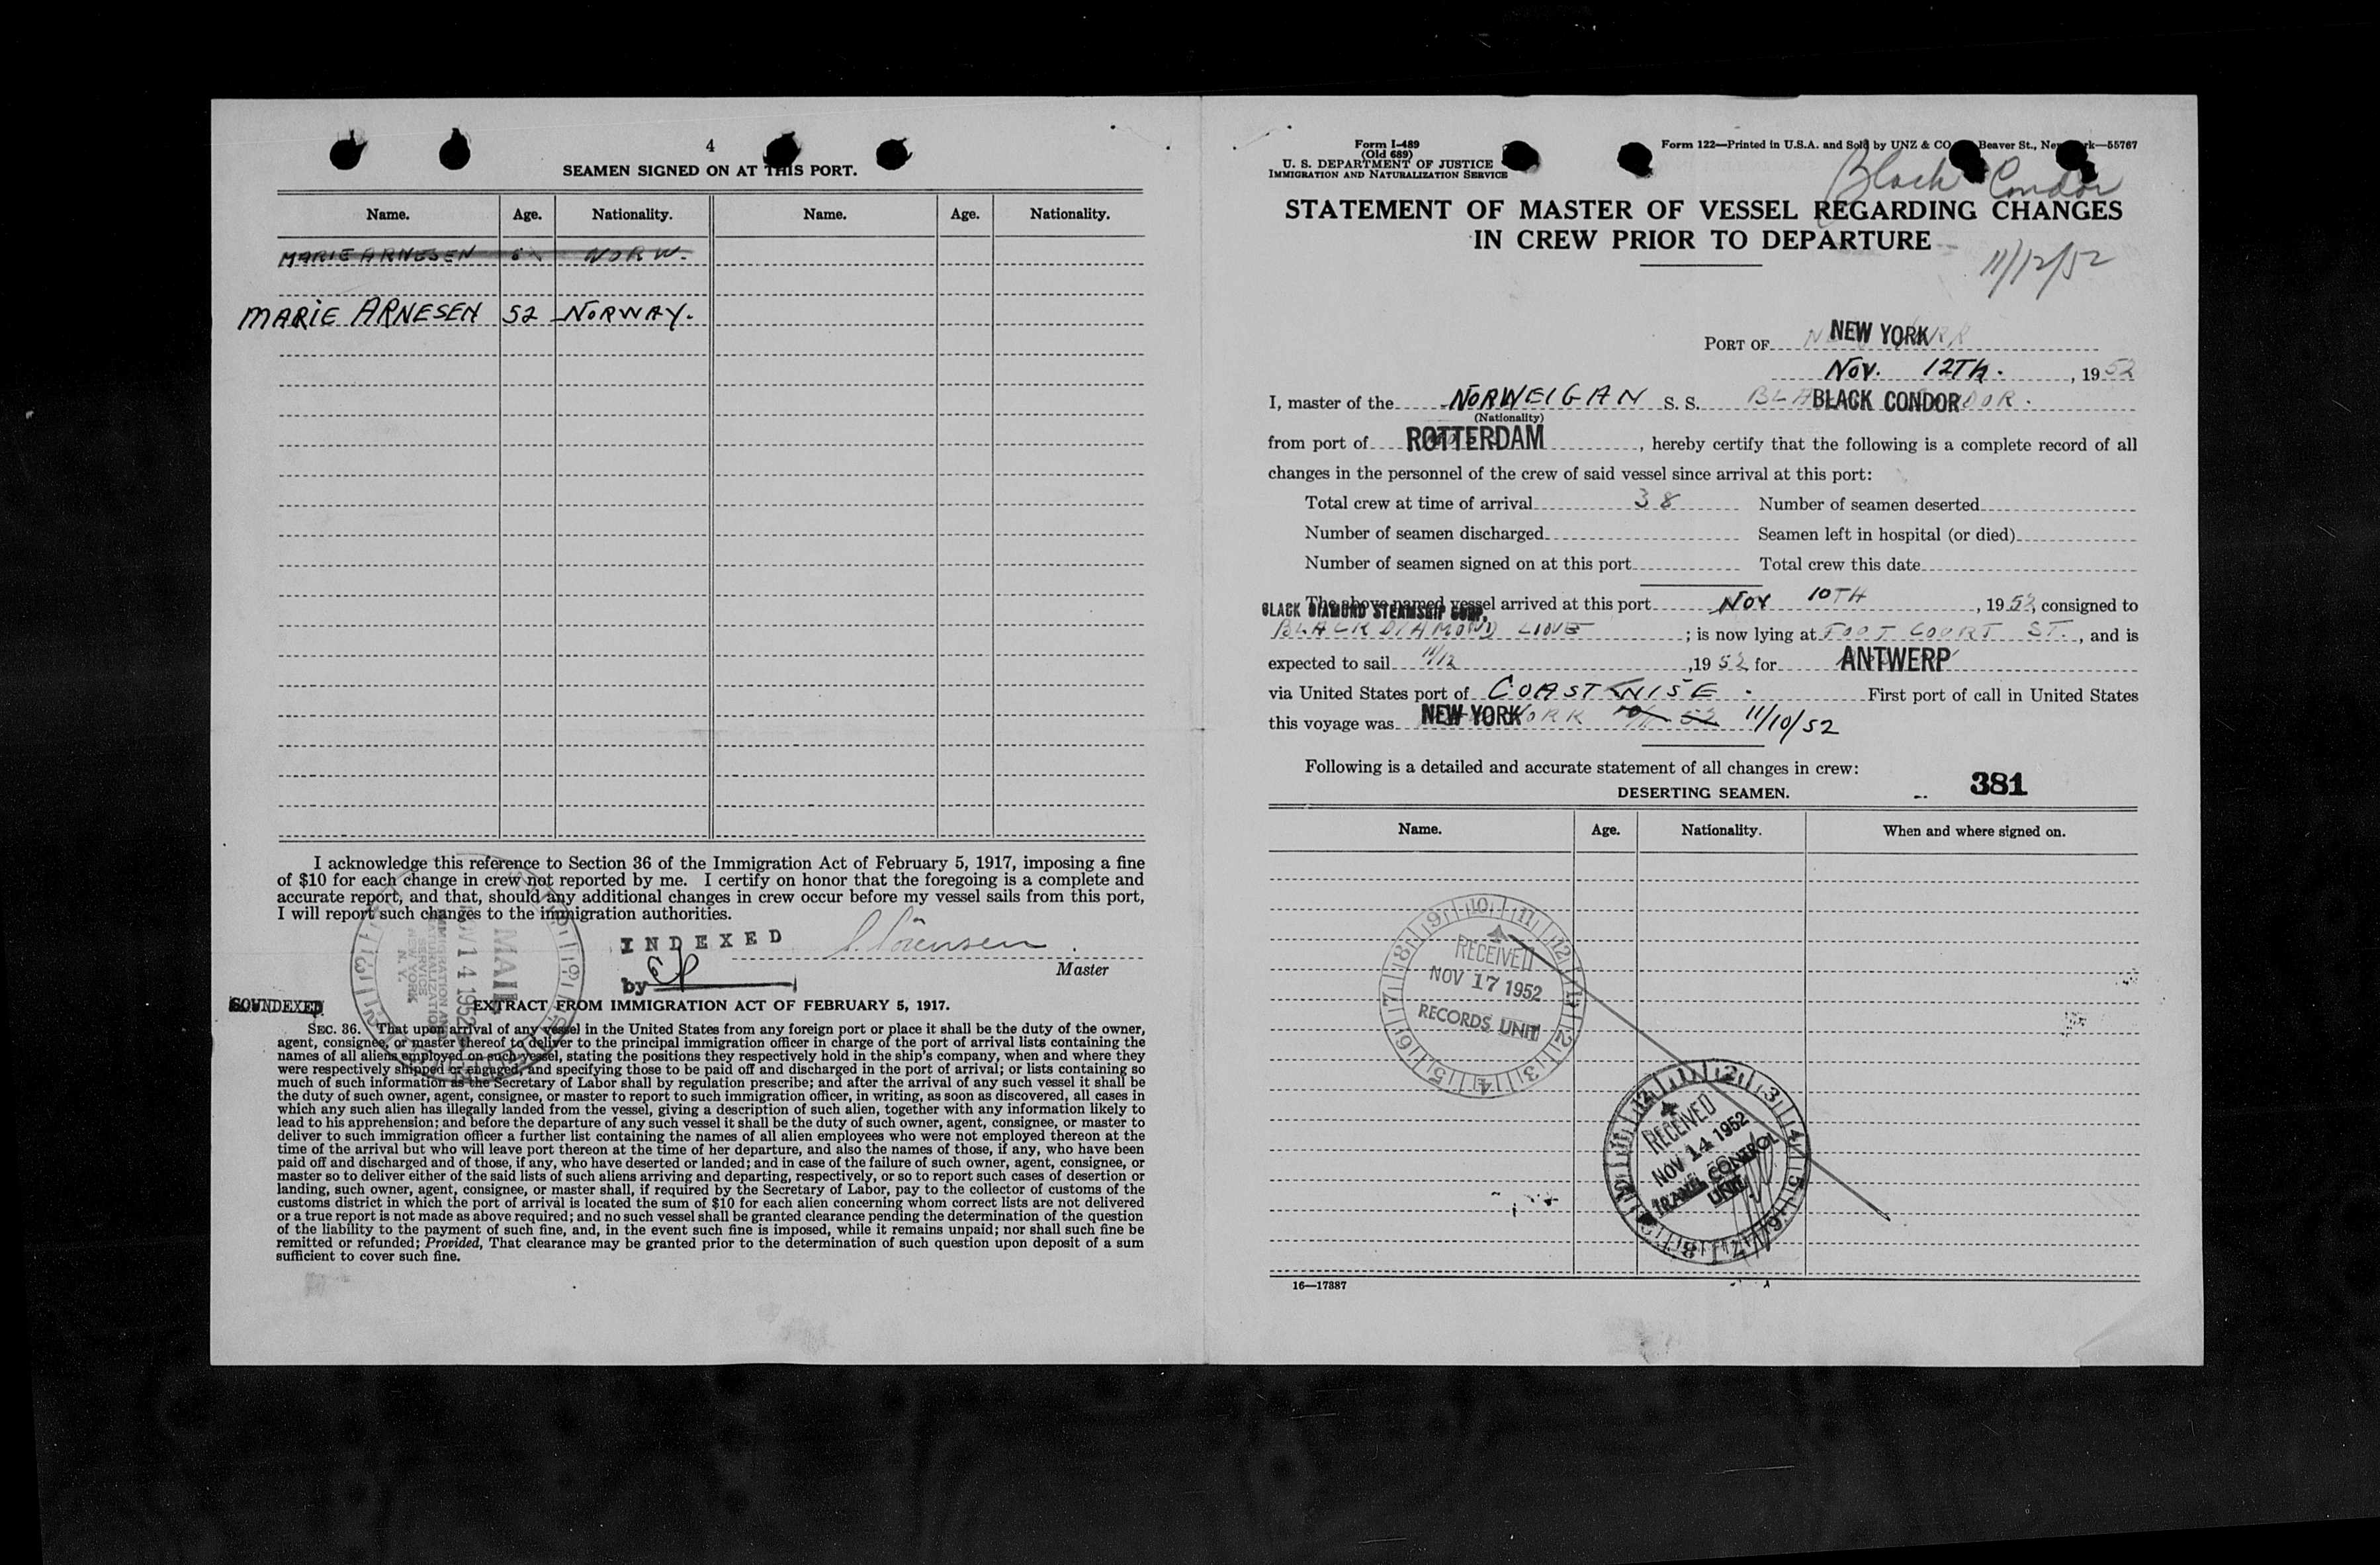 4
SEAMEN SIGNED ON AT THIS PORT.
Name. Age. Nationality. Name. Age. Nationality.
MARIE ARNESEN NORW.
MARIE ARNESEN 52 NORWAY.
I acknowledge this reference to Section 36 of the Immigration Act of February 5, 1917, imposing a fine
of $10 for each change in crew not reported by me. I certify on honor that the foregoing is a complete and
accurate report, and that, should any additional changes in crew occur before my vessel sails from this port,
I will report such changes to the immigration authorities.
INDEXED
by
Sörensen
Master
MAIL
NOV 14 1952
IMMIGRATION AND
NATURALIZATION
SERVICE
NEW YORK
N. Y.
SOUNDEXED
EXTRACT FROM IMMIGRATION ACT OF FEBRUARY 5, 1917.
SEC. 36. That upon arrival of any vessel in the United States from any foreign port or place it shall be the duty of the owner,
agent, consignee, or master thereof to deliver to the principal immigration officer in charge of the port of arrival lists containing the
names of all aliens employed on such vessel, stating the positions they respectively hold in the ship's company, when and where they
were respectively shipped or engaged, and specifying those to be paid off and discharged in the port of arrival; or lists containing so
much of such information as the Secretary of Labor shall by regulation prescribe; and after the arrival of any such vessel it shall be
the duty of such owner, agent, consignee, or master to report to such immigration officer, in writing, as soon as discovered, all cases in
which any such alien has illegally landed from the vessel, giving a description of such alien, together with any information likely to
lead to his apprehension; and before the departure of any such vessel it shall be the duty of such owner, agent, consignee, or master to
deliver to such immigration officer a further list containing the names of all alien employees who were not employed thereon at the
time of the arrival but who will leave port thereon at the time of her departure, and also the names of those, if any, who have been
paid off and discharged and of those, if any, who have deserted or landed; and in case of the failure of such owner, agent, consignee, or
master so to deliver either of the said lists of such aliens arriving and departing, respectively, or so to report such cases of desertion or
landing, such owner, agent, consignee, or master shall, if required by the Secretary of Labor, pay to the collector of customs of the
customs district in which the port of arrival is located the sum of $10 for each alien concerning whom correct lists are not delivered
or a true report is not made as above required; and no such vessel shall be granted clearance pending the determination of the question
of the liability to the payment of such fine, and, in the event such fine is imposed, while it remains unpaid; nor shall such fine be
remitted or refunded; Provided, That clearance may be granted prior to the determination of such question upon deposit of a sum
sufficient to cover such fine.
Form I-489
(Old 689)
U. S. DEPARTMENT OF JUSTICE
IMMIGRATION AND NATURALIZATION SERVICE
Form 122—Printed in U.S.A. and Sold by UNZ & CO Beaver St., New York—55767
Black Condor
STATEMENT OF MASTER OF VESSEL REGARDING CHANGES
IN CREW PRIOR TO DEPARTURE
11/12/52
PORT OF NEW YORK
Nov. 12Th. , 1952
I, master of the NORWEIGAN S. S. BLACK CONDOR
(Nationality)
from port of ROTTERDAM , hereby certify that the following is a complete record of all
changes in the personnel of the crew of said vessel since arrival at this port:
Total crew at time of arrival 38 Number of seamen deserted
Number of seamen discharged Seamen left in hospital (or died)
Number of seamen signed on at this port Total crew this date
The above named vessel arrived at this port NOV 10TH , 1952, consigned to
BLACK DIAMOND STEAMSHIP CORP.
BLACK DIAMOND LINE ; is now lying at FOOT COURT ST. , and is
expected to sail 11/12 ,1952 for ANTWERP
via United States port of COASTWISE . First port of call in United States
this voyage was NEW YORK 11/10/52
Following is a detailed and accurate statement of all changes in crew:
381
DESERTING SEAMEN.
Name. Age. Nationality. When and where signed on.
RECEIVED
NOV 17 1952
RECORDS UNIT
RECEIVED
NOV 14 1952
TRAVEL CONTROL
UNIT
16—17387